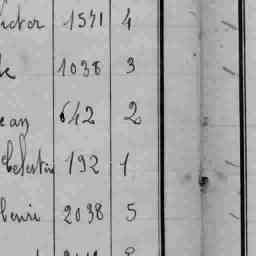 ictor 1541 4
1038 3
ean 642 2
Celestin 192 1
henri 2038 5